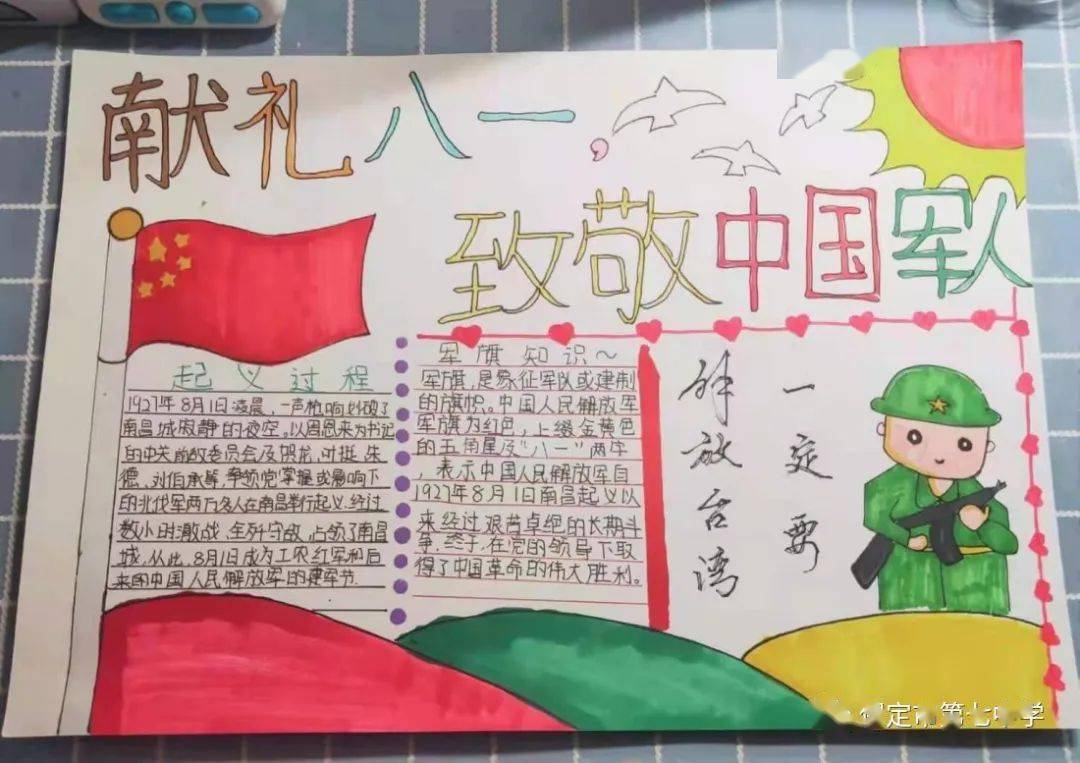 献礼八一，
致敬中国军人
起义过程
1927年8月1日凌晨，一声枪响划破了
南昌城寂静的夜空。以周恩来为书记
的中共前敌委员会及贺龙、叶挺、朱
德、刘伯承等，率领党掌握或影响下
的北伐军两万多人在南昌举行起义.经过
数小时激战，全歼守敌，占领了南昌
城，从此，8月1日成为工农红军和后
来的中国人民解放军的建军节.
军旗知识～
军旗，是象征军队或建制
的旗帜。中国人民解放军
军旗为红色，上缀金黄色
的五角星及“八一”两字
，表示中国人民解放军自
1927年8月1日南昌起义以
来经过艰苦卓绝的长期斗
争，终于，在党的领导下取
得了中国革命的伟大胜利。
一定要
解放台湾
保定市第七中学